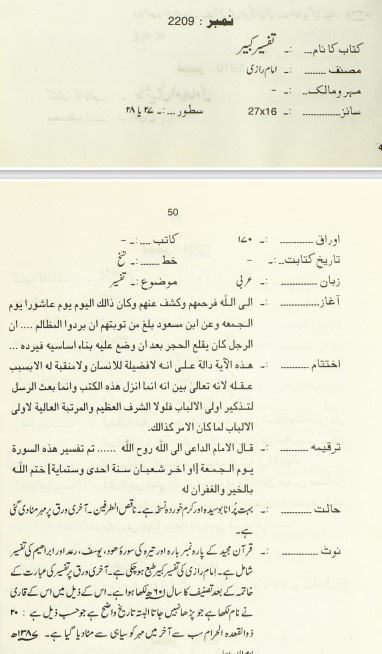 نمبر : 2209
کتاب کا نام... :۔ تفسیر کبیر
مصنف ........ :۔ امام رازی
مہر و مالک.. :۔ -
سائز............. :۔ 27x16 سطور ...:۔ ۲۷ یا ۲۸
50
اوراق ........... :۔ ۱۷۰ کاتب ....:۔ -
تاریخ کتابت.. :۔ - خط ......:۔ نسخ
زبان ............. :۔ عربی موضوع :۔ تفسیر
آغاز............. :۔ الی اللّٰه فرحمهم وکشف عنهم وکان ذالك اليوم يوم عاشورا يوم
الجمعه وعن ابن مسعود بلغ من توبتهم ان يردوا المظالم .... ان
الرجل کان یقلع الحجر بعد ان وضع علیه بناء اساسیه فیرده ...
اختتام .......... :۔ هذه الآية دالة على انه لافضيلة للانسان ولامنقبة له الابسبب
عقله لانه تعالى بين انه انما انزل هذه الكتب وانما بعث الرسل
لتذكير اولى الالباب فلولا الشرف العظيم والمرتبة العالية لاولى
الالباب لما كان الامر كذالك.
ترقیمه ........ :۔ قال الامام الداعى الى اللّٰه روح اللّٰه ...... تم تفسير هذه السورة
يوم الجمعة [او اخر شعبان سنة احدى وستماية] ختم اللّٰه
بالخير والغفران له
حالت .......... :۔ بہت پُرانا بوسیدہ اور کرم خوردہ نسخہ ہے۔ ناقص الطرفین۔ آخری ورق پر مہر مٹادی گئی
ہے۔
نوٹ ............ :۔ قرآن مجید کے پارہ نمبر بارہ اور تیرہ کی سورۂ ھود، یوسف، رعد اور ابراھیم کی تفسیر
شامل ہے۔ امام رازی کی تفسیر کبیر طبع ہوچکی ہے۔ آخری ورق پر تفسیر کی عبارت کے
خاتمہ کے بعد تصنیف کا سال ۶۰۱ھ لکھا ہوا ہے۔ اس کے ذیل میں اس کے قاری
نے نام لکھا ہے جو پڑھا نہیں جاتا البتہ تاریخ واضح ہے جو حسب ذیل ہے: ۲۰
ذوالقعدہ الحرام سب سے آخر میں مہر کو سیاہی سے مٹادیا گیا ہے۔ ۱۳۸۷ھ